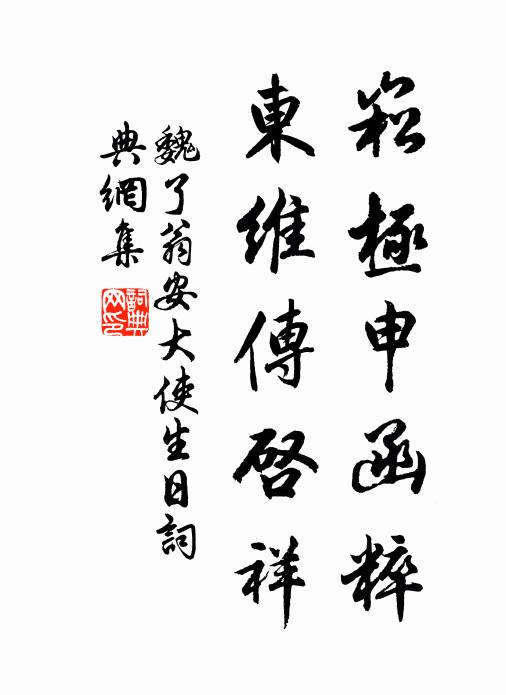 崧極申函粹
東維傅啓祥
魏了翁安大使生日詞
典網集
詞典網印